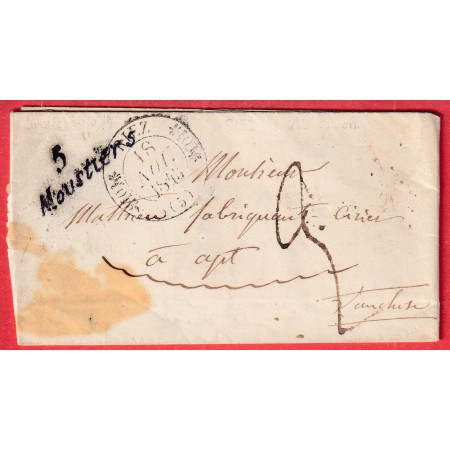 5
Moustiers
IEZ
18
1843
(5)
Monsieur
Mathieu fabriquant Cirier
à apt
Vaucluse